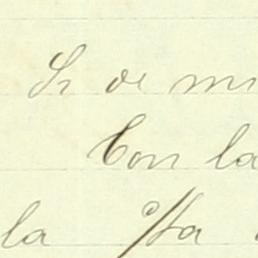 Sr de mi
Con la
la c/ta